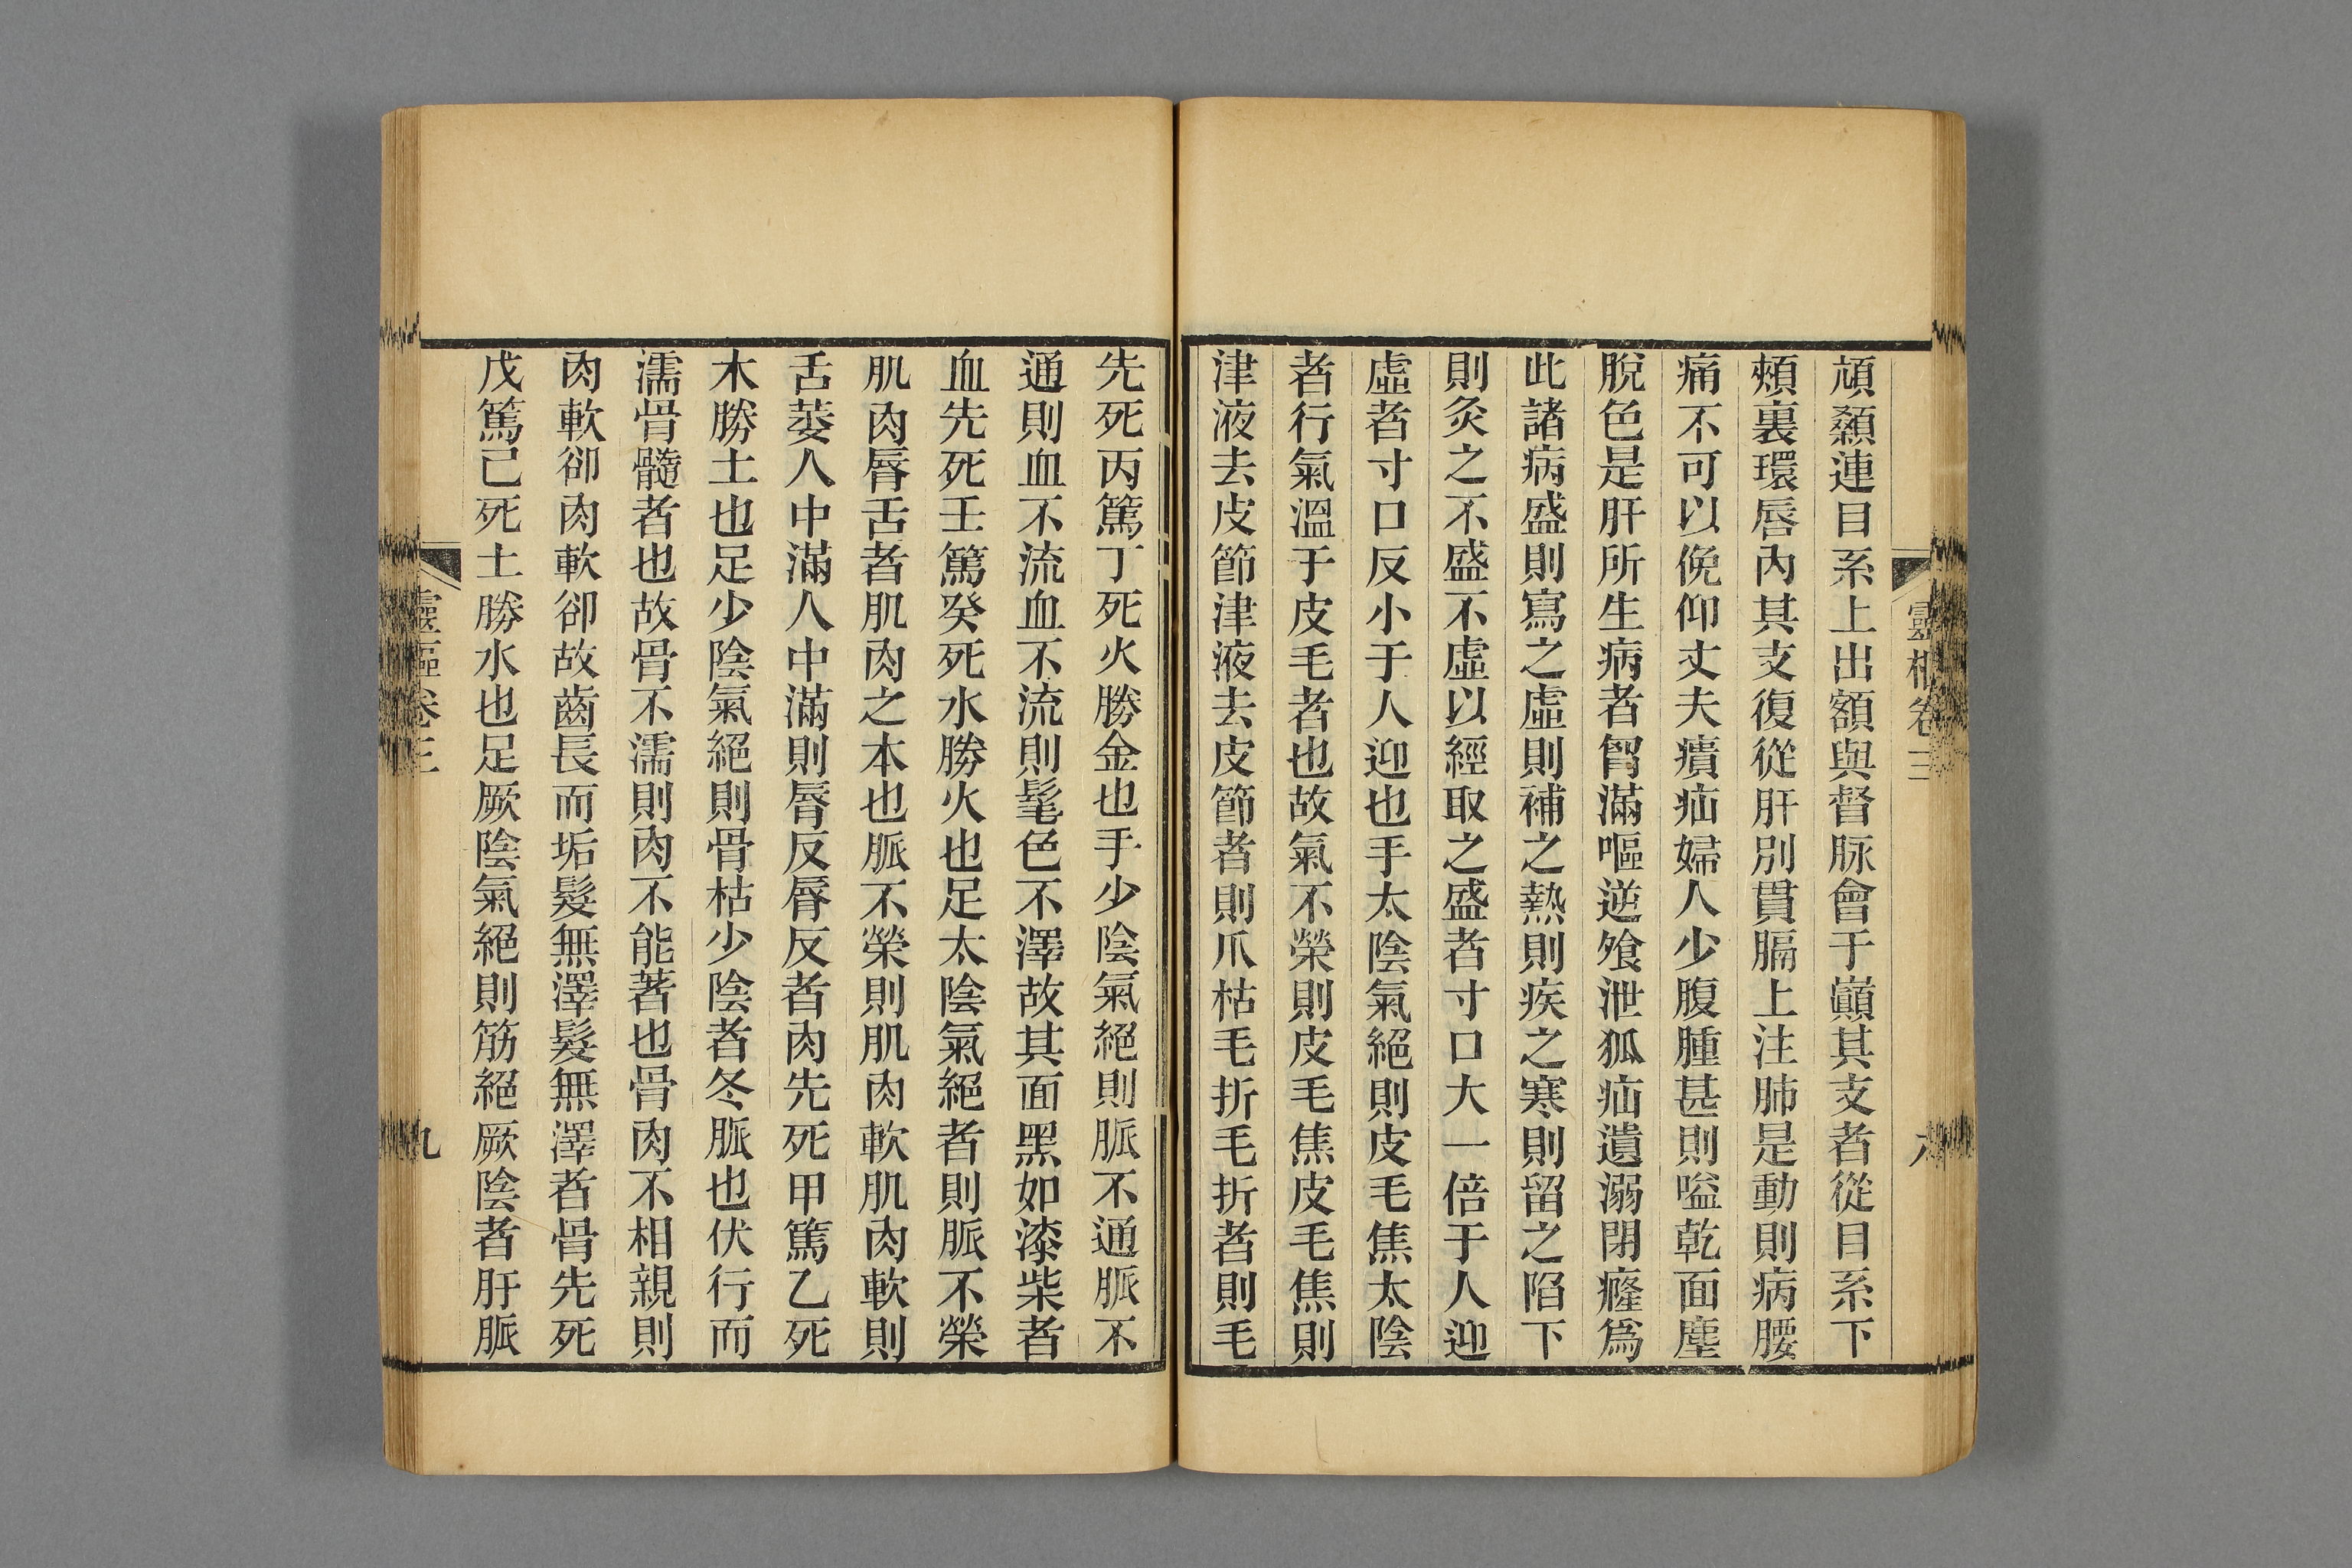 頏顙連目系上出額與督脉會于巔其支者從目系下
頰裏環唇內其支復從肝別貫膈上注肺是動則病腰
痛不可以俛仰丈夫㿉疝婦人少腹腫甚則嗌乾面塵
脫色是肝所生病者胷滿嘔逆飱泄狐疝遺溺閉癃爲
此諸病盛則寫之虛則補之熱則疾之寒則留之陷下
則灸之不盛不虛以經取之盛者寸口大一倍于人迎
虛者寸口反小于人迎也手太陰氣絕則皮毛焦太陰
者行氣溫于皮毛者也故氣不榮則皮毛焦皮毛焦則
津液去皮節津液去皮節者則爪枯毛折毛折者則毛
先死丙篤丁死火勝金也手少陰氣絕則脈不通脈不
通則血不流血不流則髦色不澤故其面黑如漆柴者
血先死壬篤癸死水勝火也足太陰氣絕者則脈不榮
肌肉脣舌者肌肉之本也脈不榮則肌肉軟肌肉軟則
舌萎人中滿人中滿則脣反脣反者肉先死甲篤乙死
木勝土也足少陰氣絕則骨枯少陰者冬脈也伏行而
濡骨髓者也故骨不濡則肉不能著也骨肉不相親則
肉軟卻肉軟卻故齒長而垢髮無澤髮無澤者骨先死
戊篤己死土勝水也足厥陰氣絕則筋絕厥陰者肝脈
靈樞卷三
九